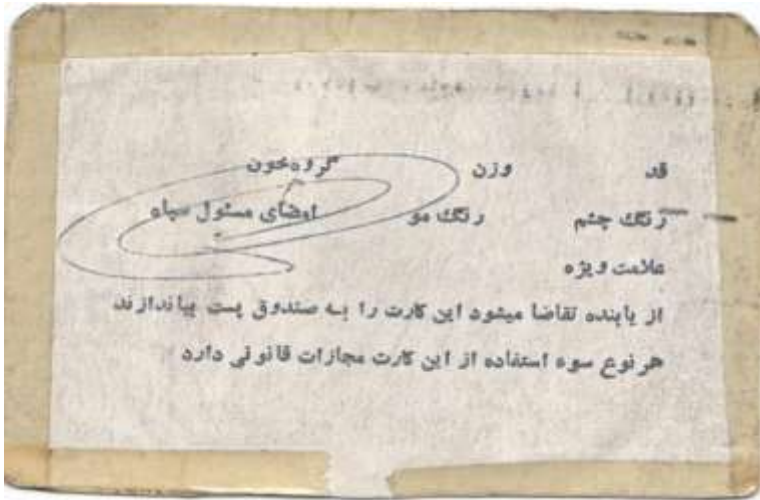 قد وزن گروه خون
رنگ چشم رنگ مو امضای مسئول سپاه
علامت ویژه
از یابنده تقاضا میشود این کارت را به صندوق پست بیاندازند
هر نوع سوء استفاده از این کارت مجازات قانونی دارد